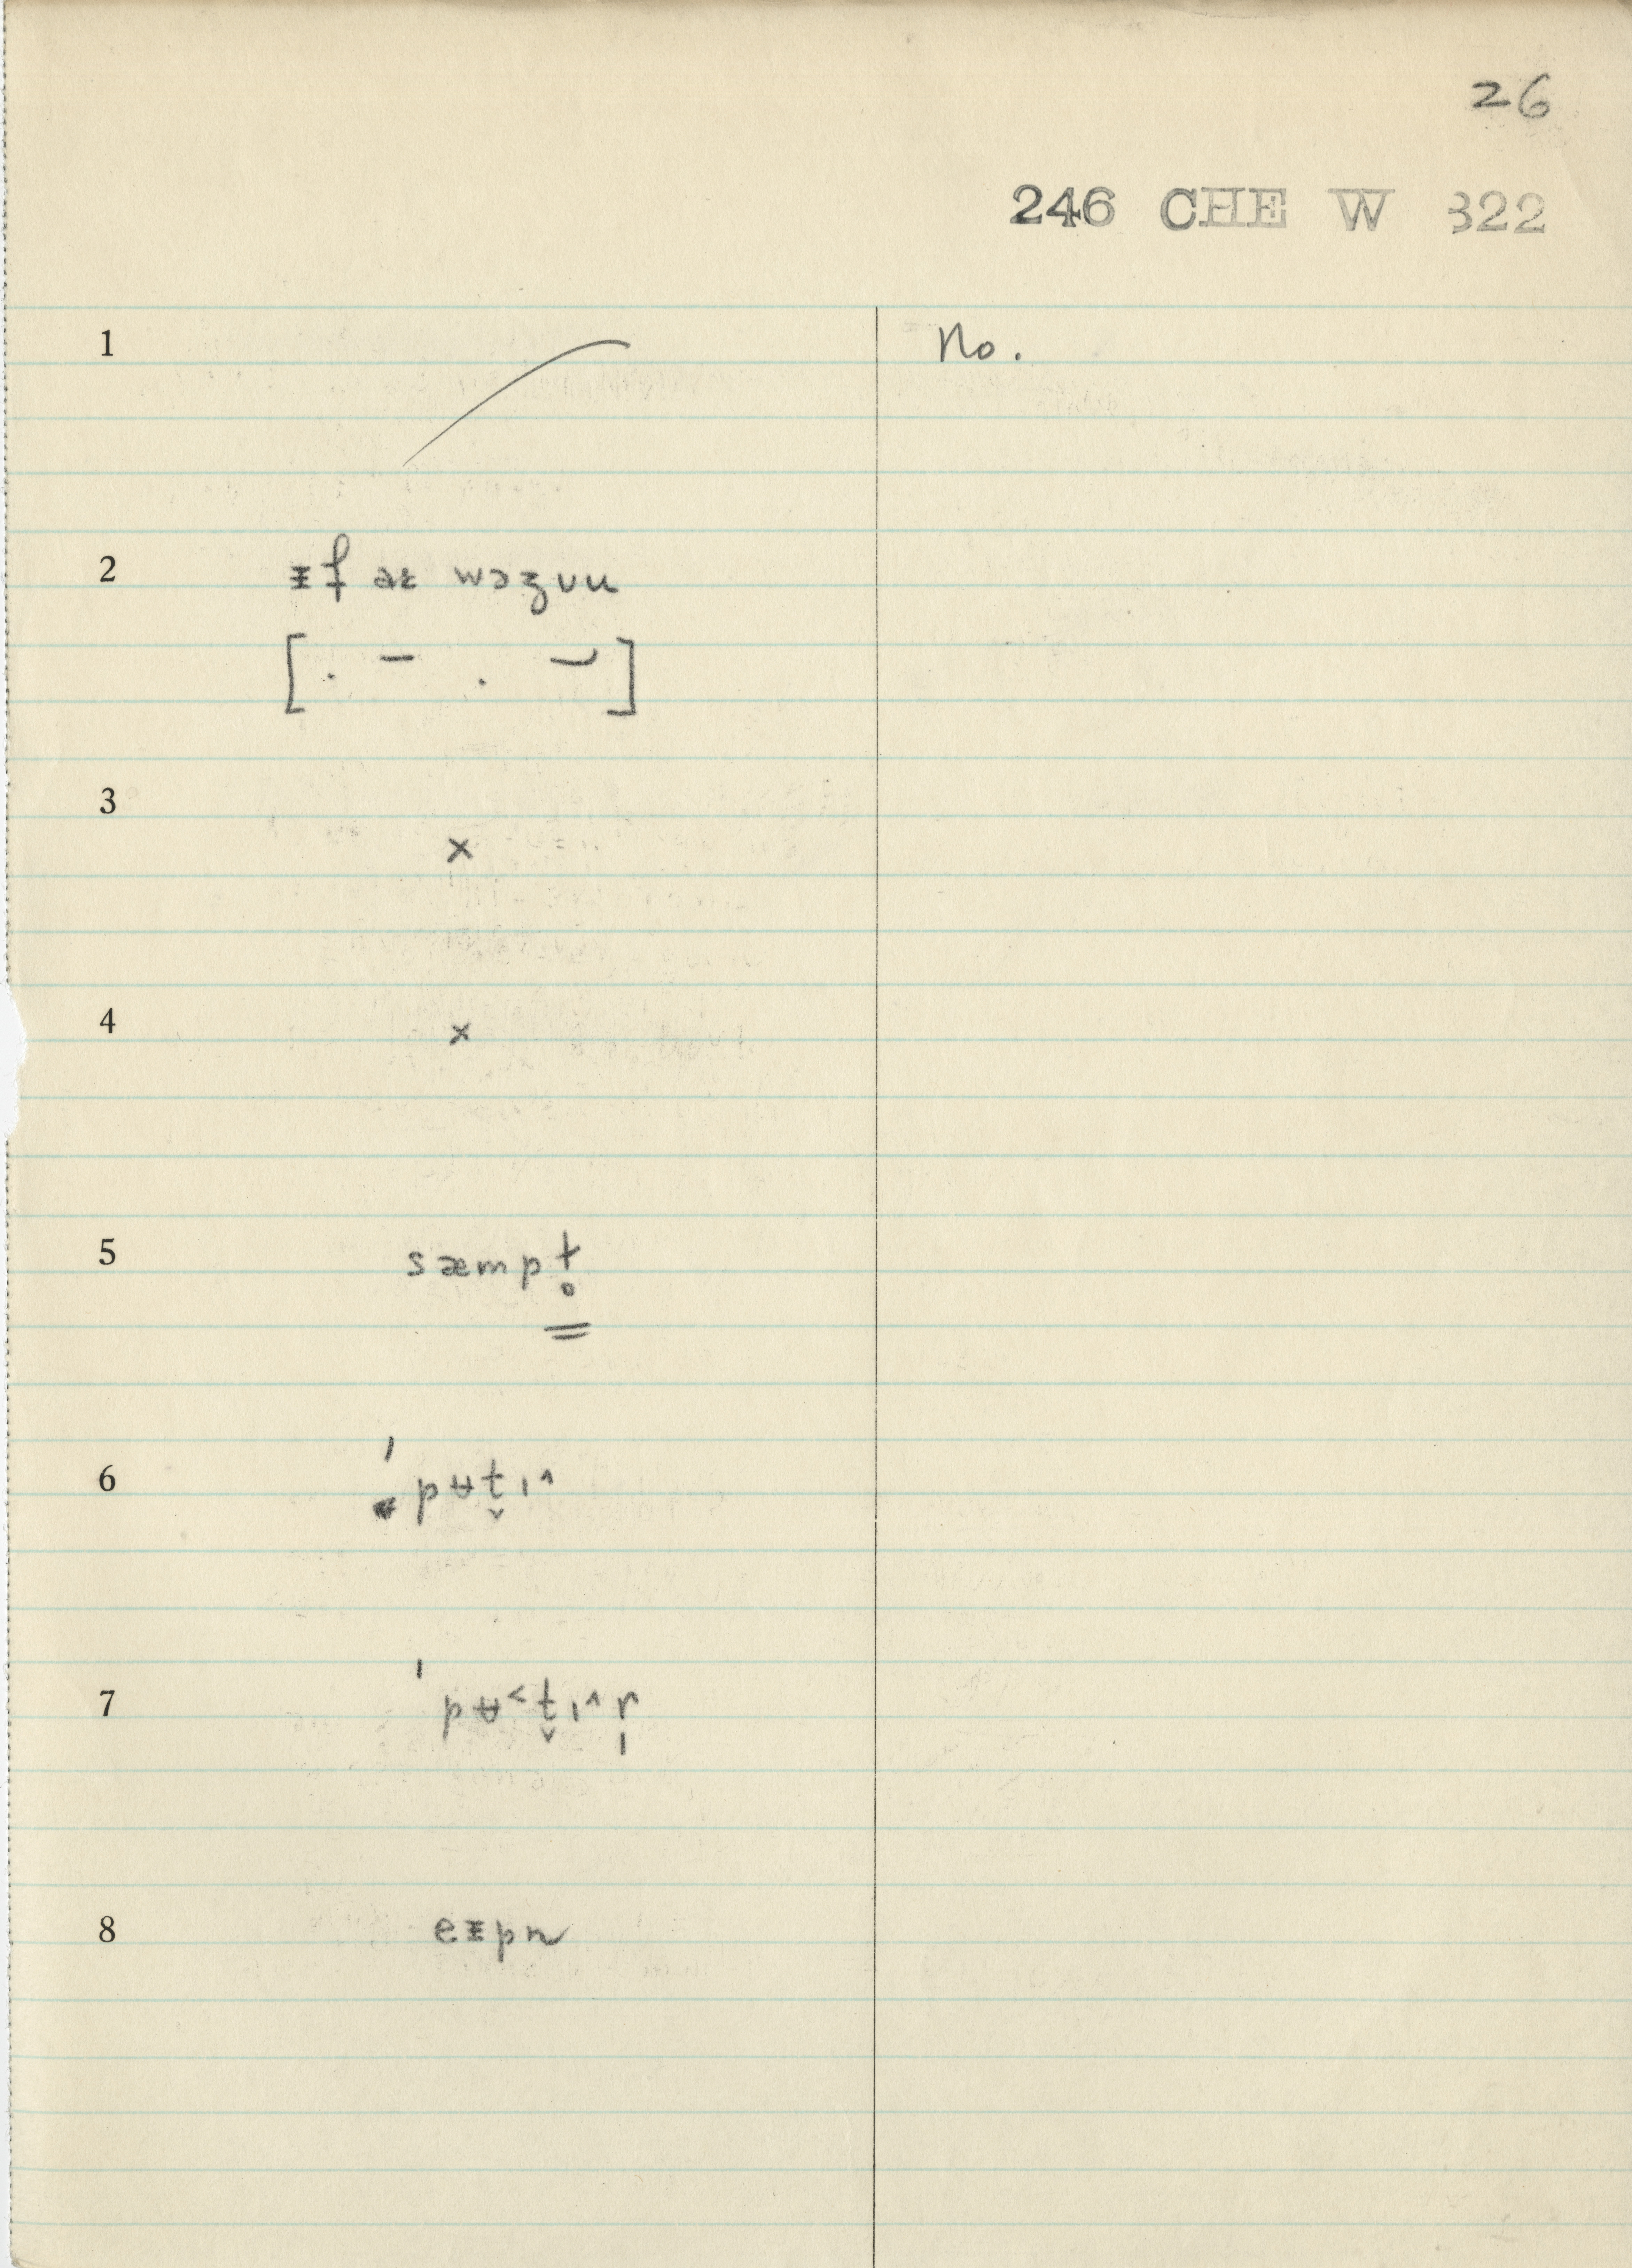 26
246 CHE W 322
1 No.
2 ᵻf aɪ wəz yu
3 ×
4 ×
5 sæmpt̥
6 'pʉt̬ɪ^
7 'pʉ˂t̬ɪ^r̩
8 eᵻpn